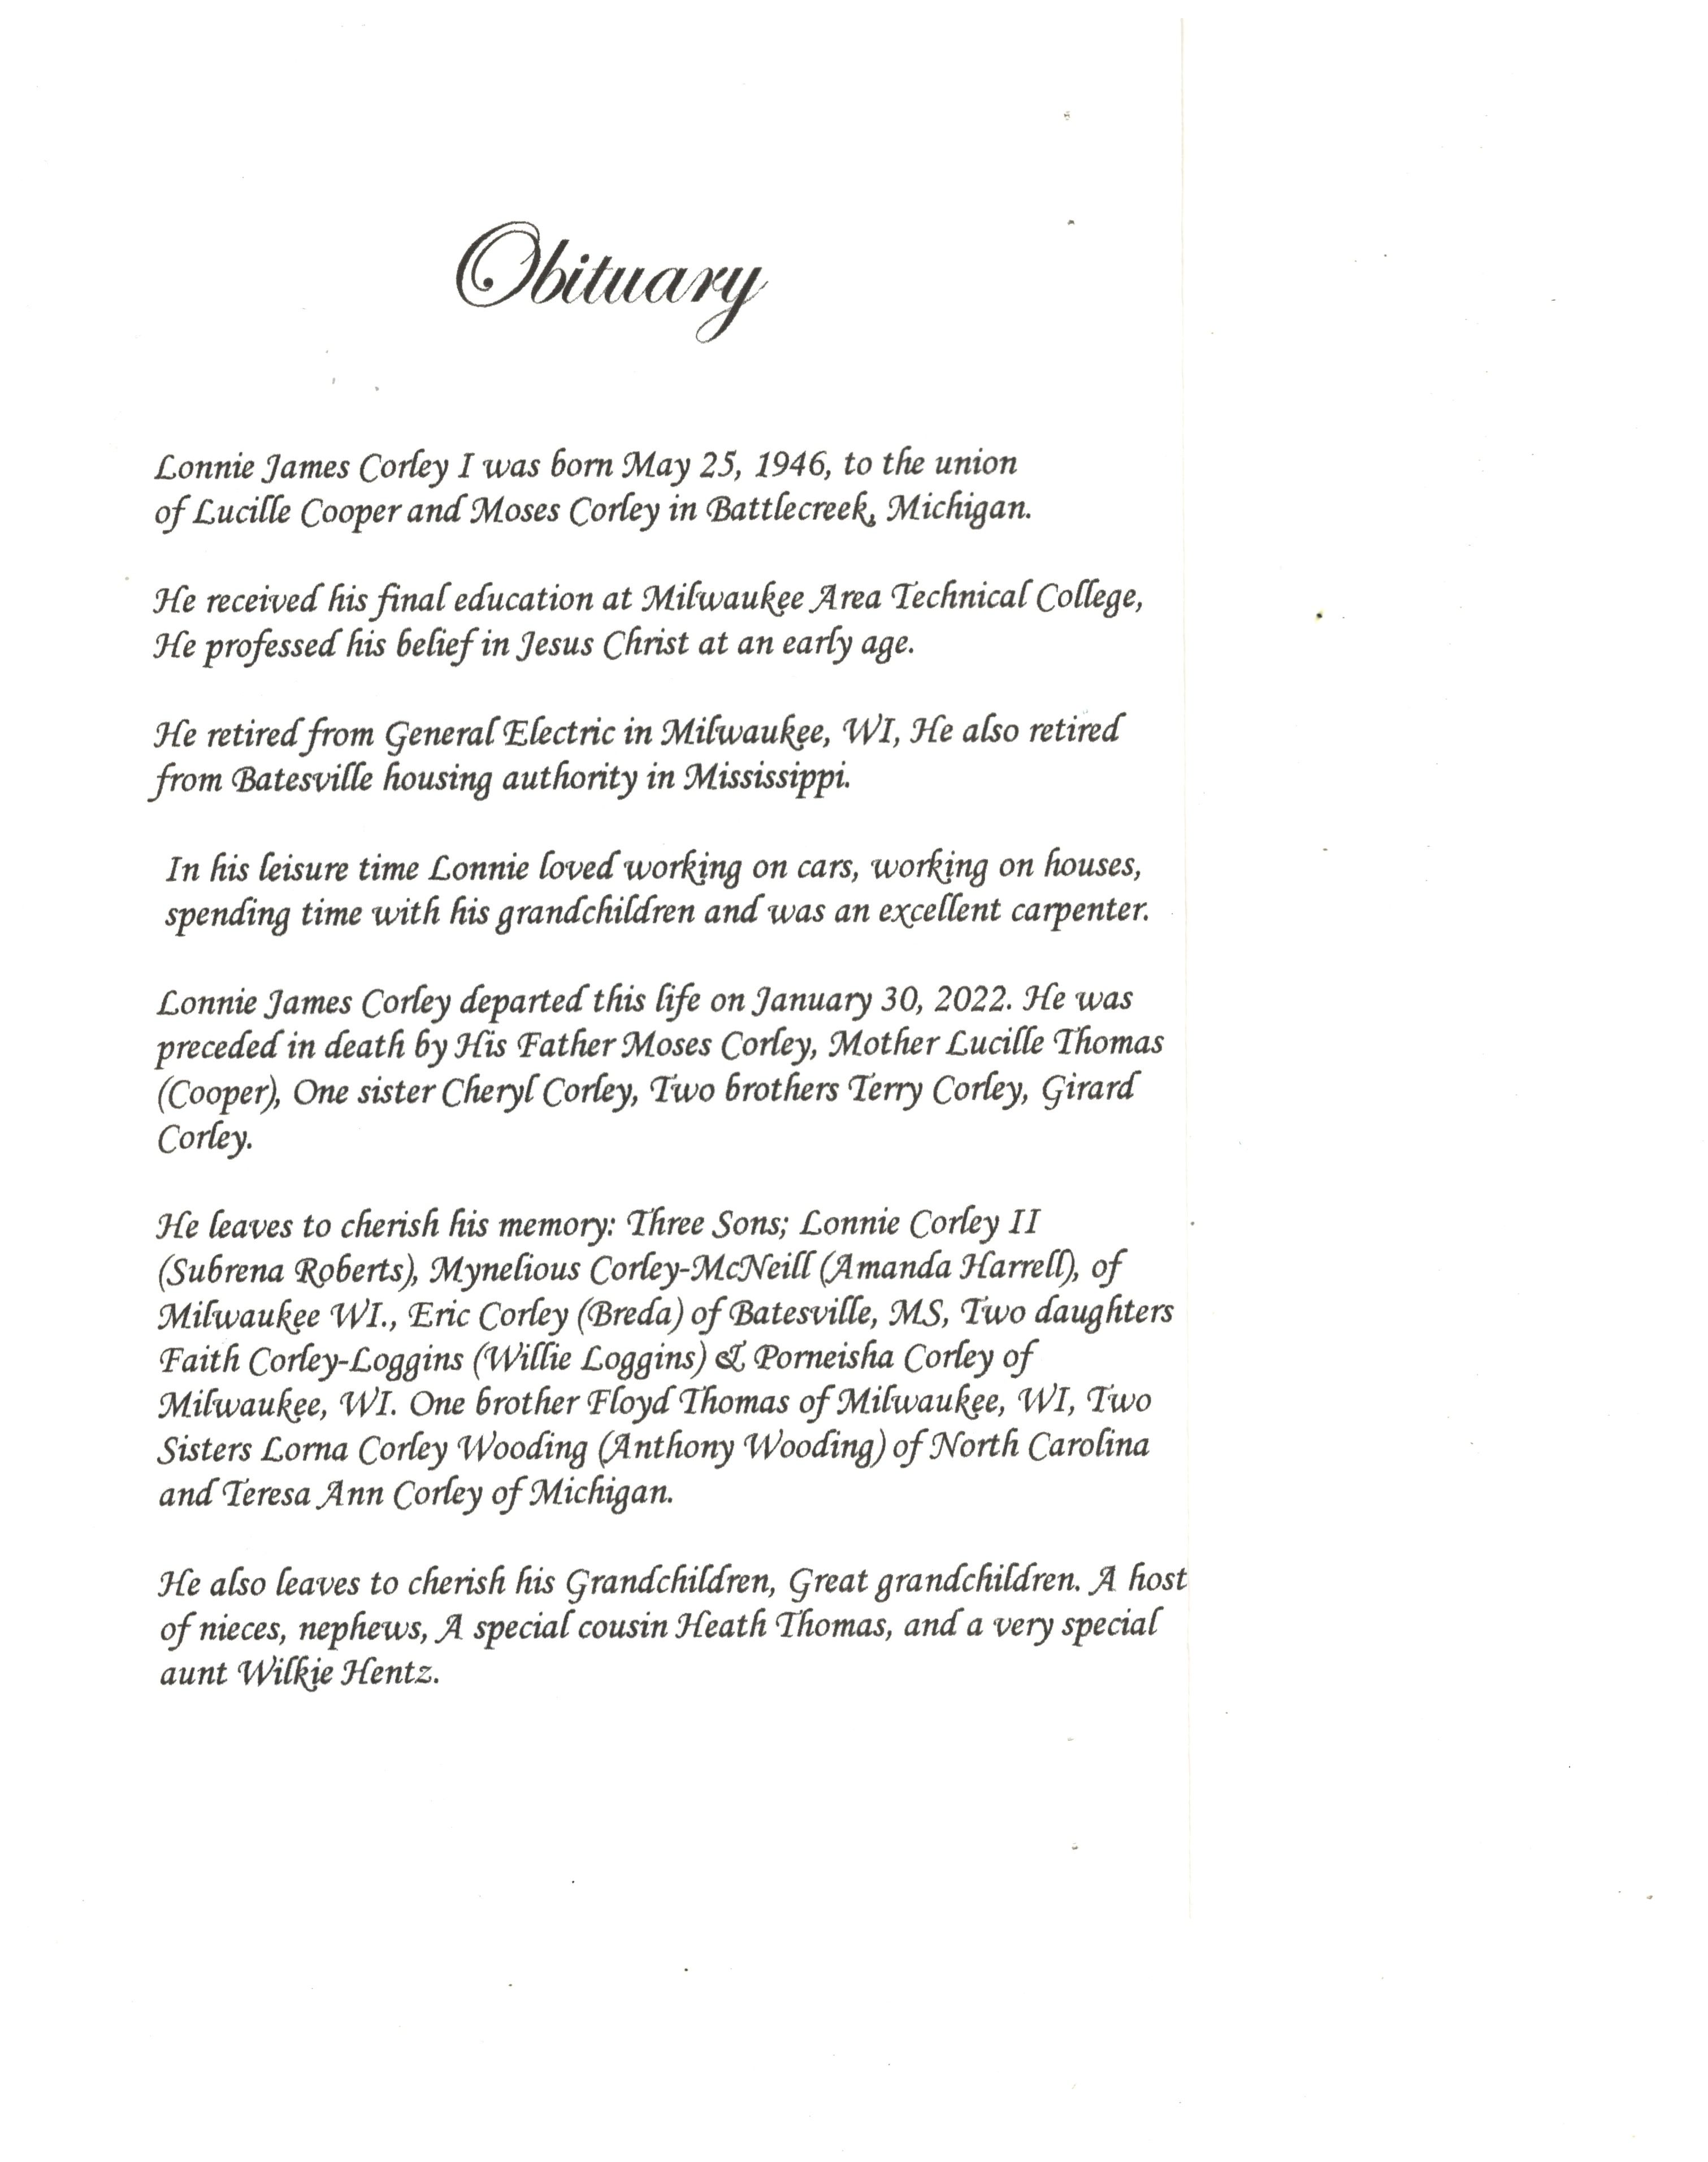 Obituary
Lonnie James Corley I was born May 25, 1946, to the union
of Lucille Cooper and Moses Corley in Battlecreek, Michigan.
He received his final education at Milwaukee Area Technical College,
He professed his belief in Jesus Christ at an early age.
He retired from General Electric in Milwaukee, WI, He also retired
from Batesville housing authority in Mississippi.
In his leisure time Lonnie loved working on cars, working on houses,
spending time with his grandchildren and was an excellent carpenter.
Lonnie James Corley departed this life on January 30, 2022. He was
preceded in death by His Father Moses Corley, Mother Lucille Thomas
(Cooper), One sister Cheryl Corley, Two brothers Terry Corley, Girard
Corley.
He leaves to cherish his memory: Three Sons; Lonnie Corley II
(Subrena Roberts), Mynelious Corley-McNeill (Amanda Harrell), of
Milwaukee WI., Eric Corley (Breda) of Batesville, MS, Two daughters
Faith Corley-Loggins (Willie Loggins) & Porneisha Corley of
Milwaukee, WI. One brother Floyd Thomas of Milwaukee, WI, Two
Sisters Lorna Corley Wooding (Anthony Wooding) of North Carolina
and Teresa Ann Corley of Michigan.
He also leaves to cherish his Grandchildren, Great grandchildren. A host
of nieces, nephews, A special cousin Heath Thomas, and a very special
aunt Wilkie Hentz.